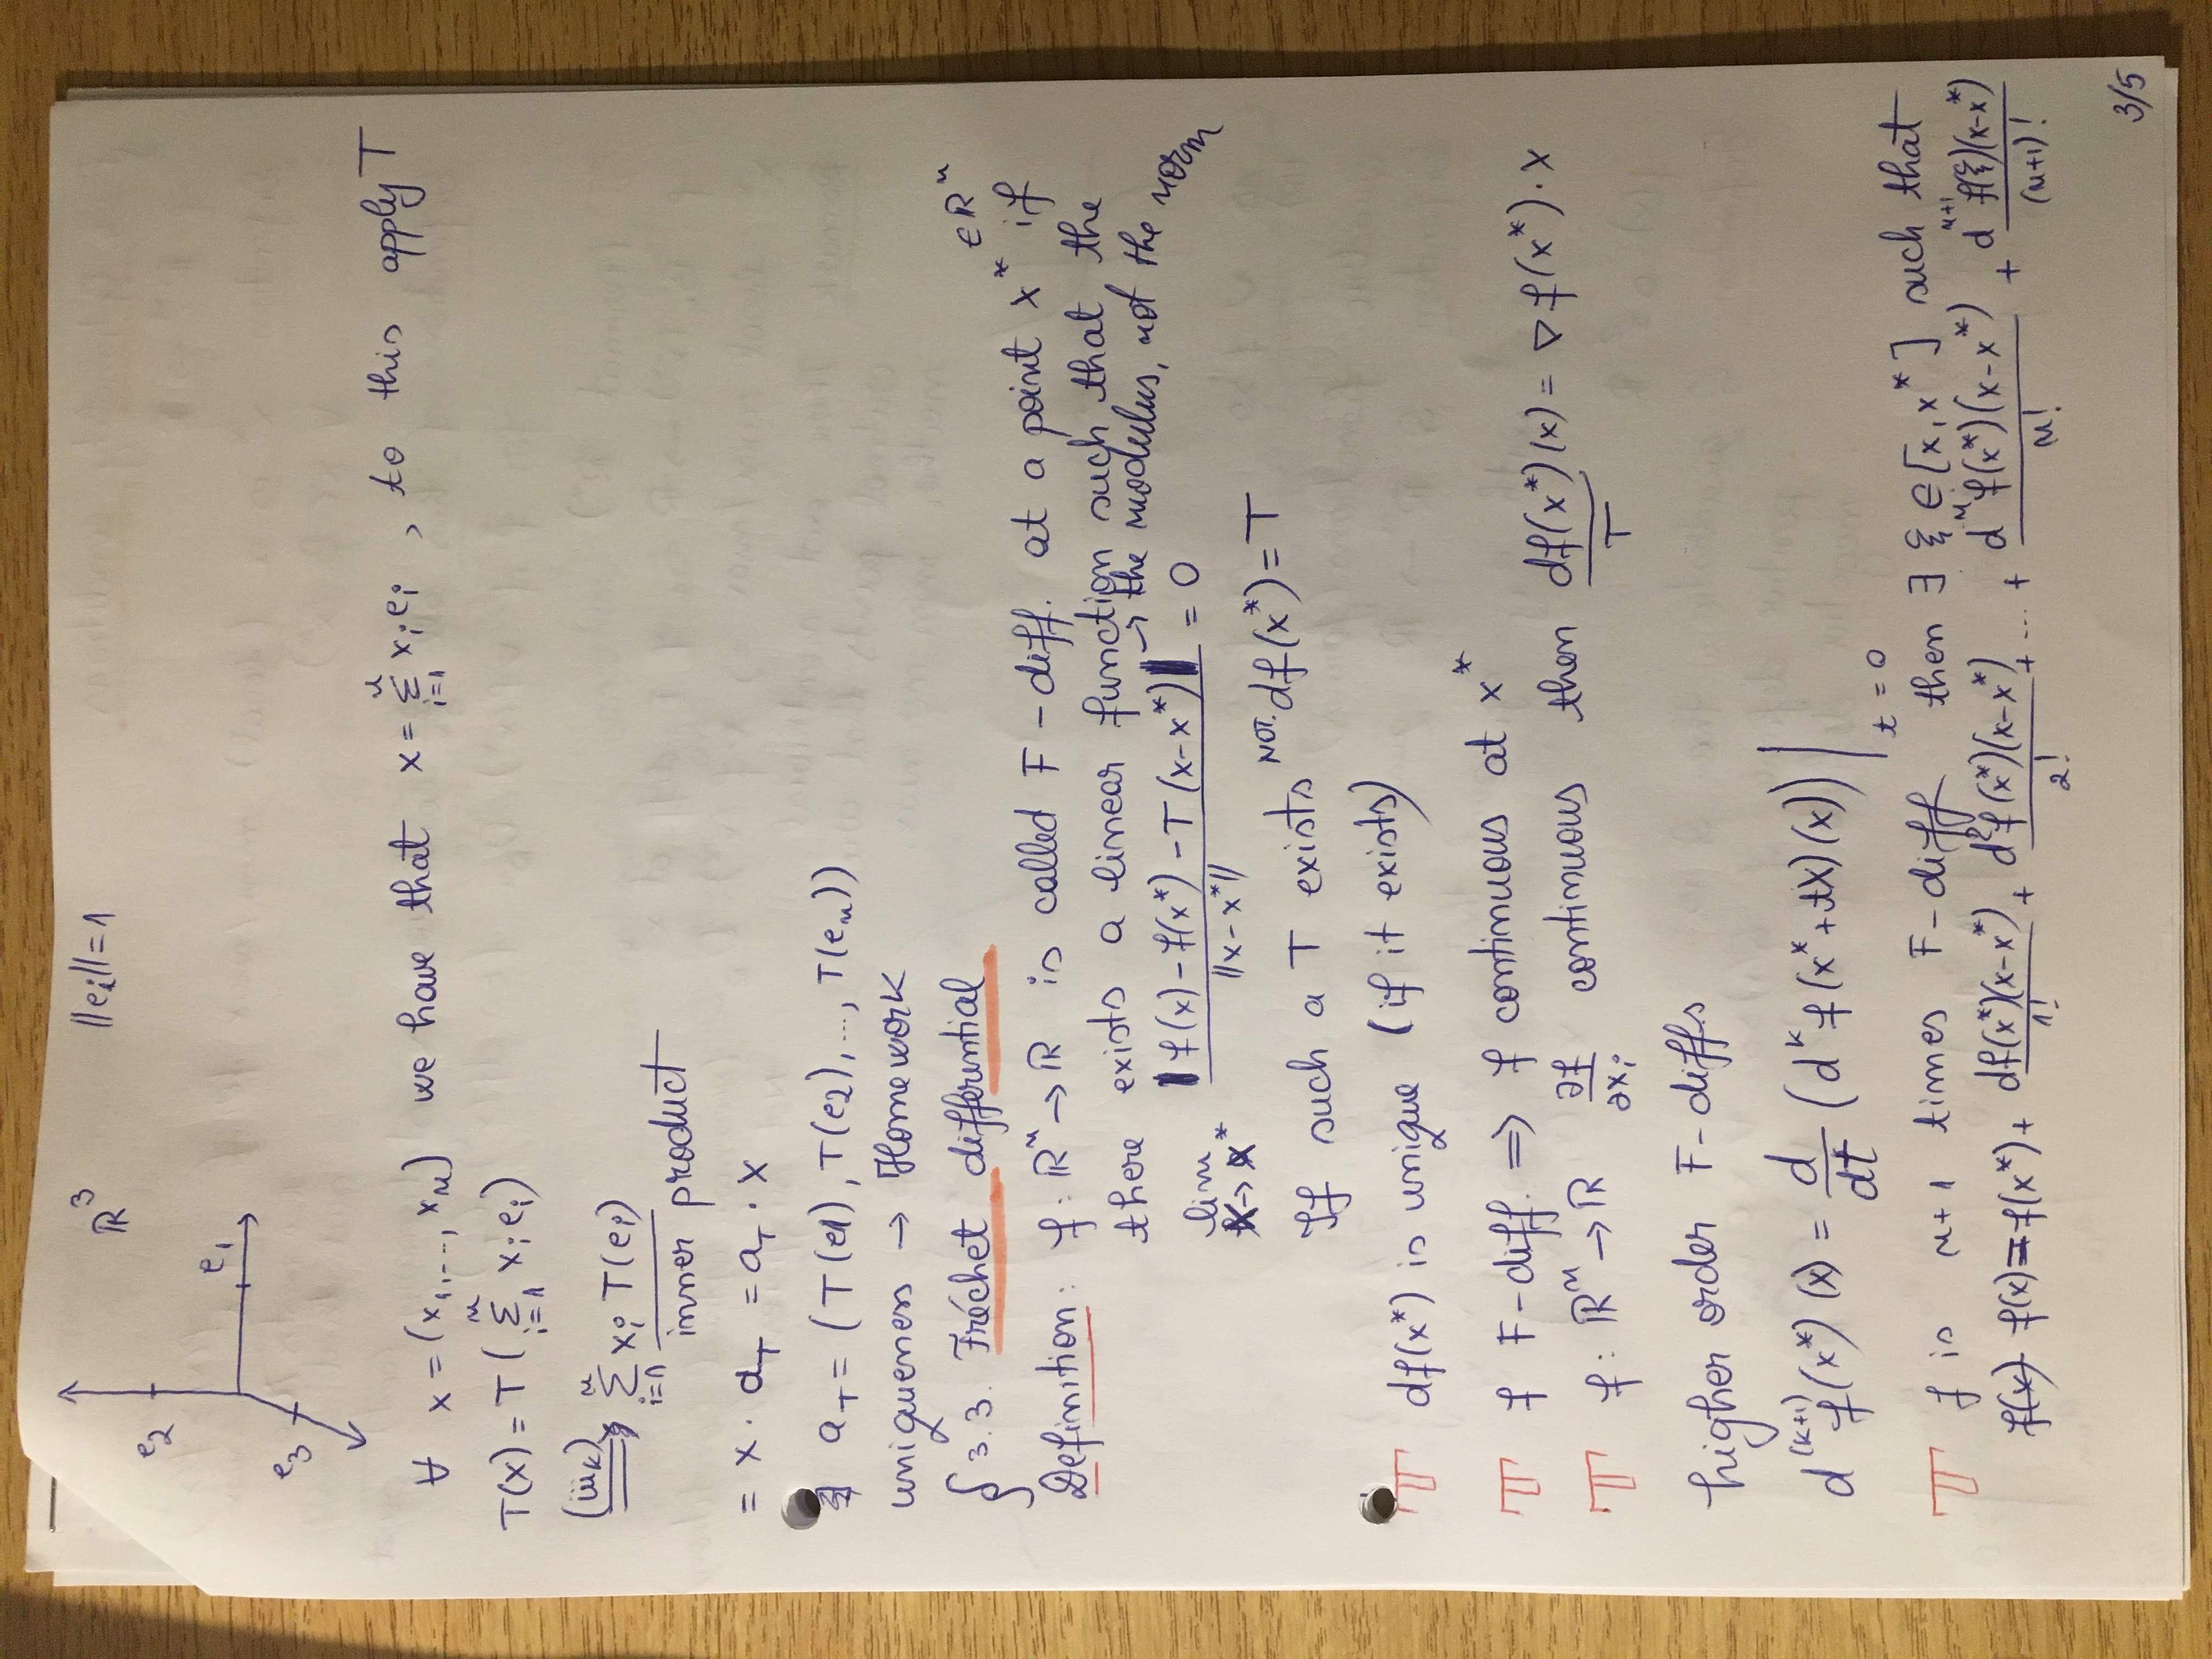 ℝ³ ||eᵢ|| = 1
e₂
e₁
e₃
∀ x = (x₁,..., xₙ) we have that x = Σᵢ₌₁ⁿ xᵢeᵢ , to this apply T
T(x) = T( Σᵢ₌₁ⁿ xᵢeᵢ)
(iiiₖ) ⟹ Σᵢ₌₁ⁿ xᵢ T(eᵢ)
inner product
= x · a_T = a_T · x
∃ a_T = (T(e1), T(e2),..., T(eₙ))
uniqueness → Homework
§ 3.3. Fréchet differential
Definition: f: ℝⁿ → ℝ is called F-diff. at a point x* ∈ ℝⁿ if
there exists a linear function such that the
lim x→x* |f(x) - f(x*) - T(x-x*)| / ||x-x*|| = 0 → the modulus, not the norm
If such a T exists NOT. df(x*) = T
T df(x*) is unique (if it exists)
T f F-diff. ⟹ f continuous at x*
T f: ℝⁿ → ℝ ∂f/∂xᵢ continuous then df(x*)(x) = ∇f(x*)·x
T
higher order F-diffs
d⁽ᵏ⁺¹⁾f(x*)(x) = d/dt (dᵏf(x*+tx)(x))|t=0
T f is n+1 times F-diff then ∃ ξ ∈ [x, x*] such that
f(x) f(x) = f(x*) + df(x*)(x-x*)/1! + d²f(x*)(x-x*)/2! + ... + dⁿf(x*)(x-x*)/n! + dⁿ⁺¹f(ξ)(x-x*)/(n+1)!
3/5